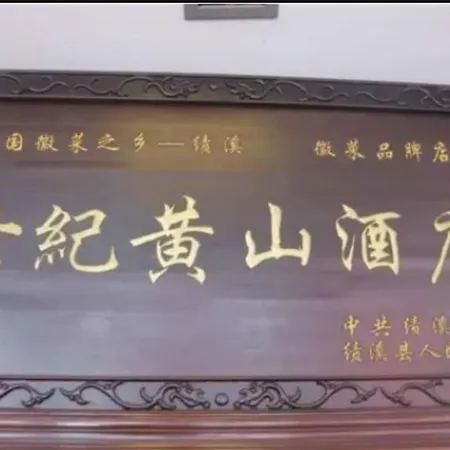 国徽菜之乡——绩溪 徽菜品牌店
世紀黄山酒店
中共绩溪
绩溪县人民